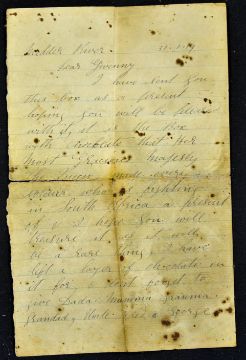 Modder River
Dear Gwenny
I have sent you
this box as a present
hoping you will be pleased
with it, it is the box
with chocolate that Her
most Gracious Majesty
the Queen every
soldier who is fighting
in South Africa a present
of & I hope you will
treasure it as it will
be a rare thing, I have
left a layer of chocolate in
it for, & dont forget to
give Dada, Mamma, Gramma
Grandad, Uncle & George